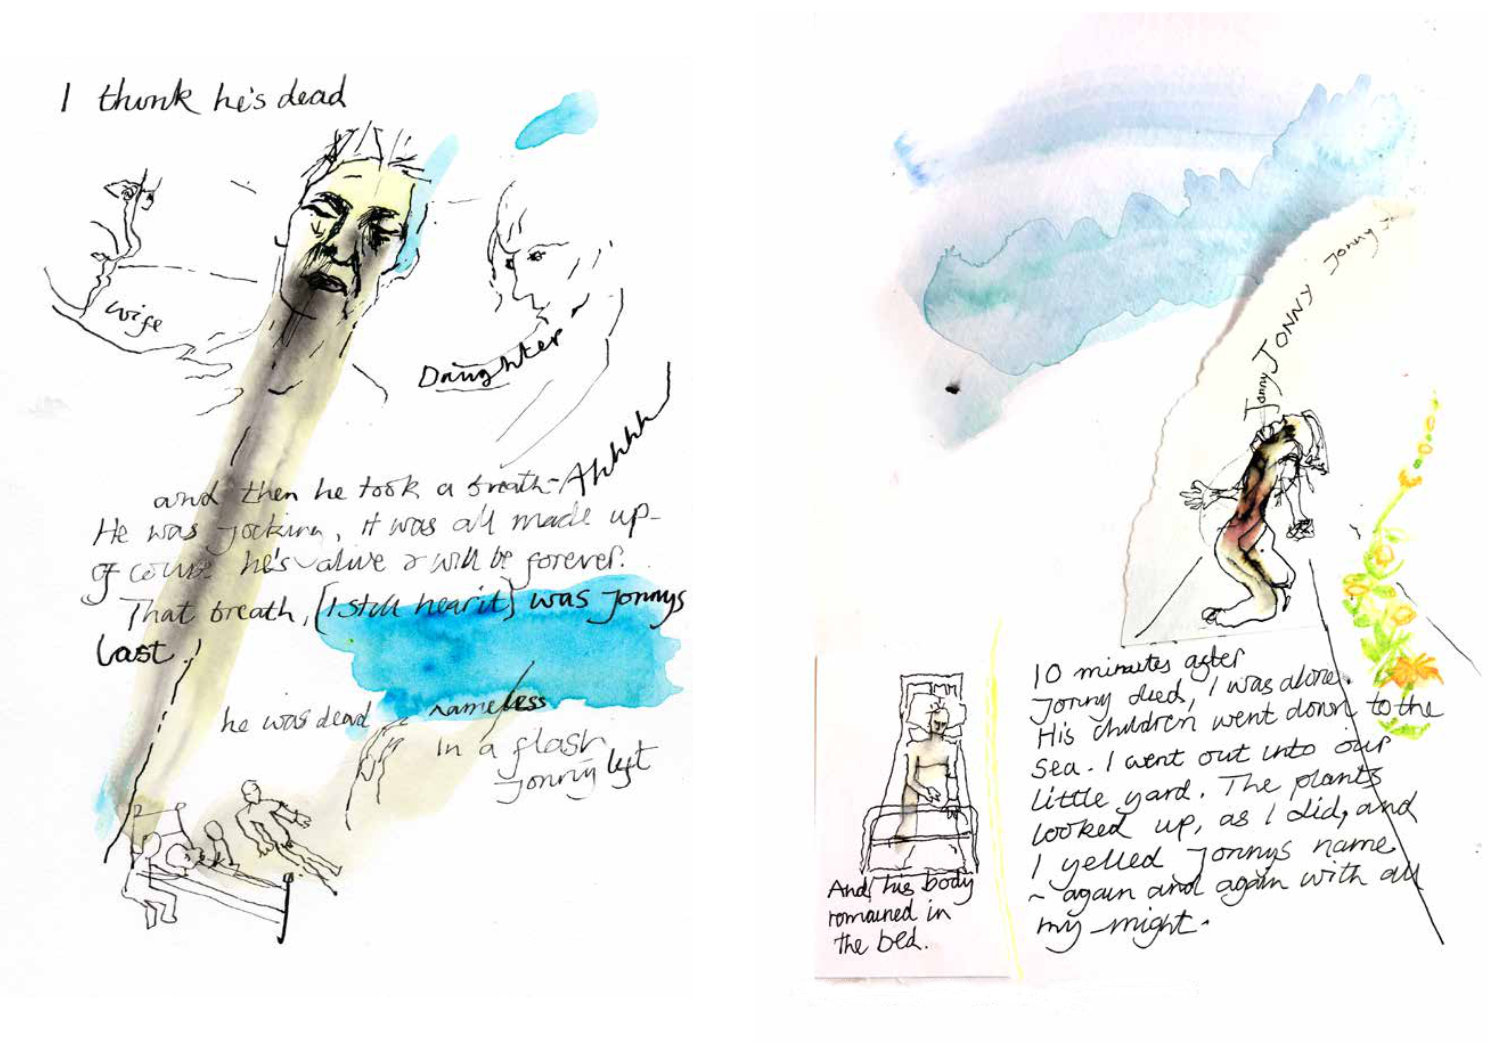 I think he's dead
wife
Daughter
and then he took a breath - Ahhhh
He was jocking, it was all made up -
of course he's alive & will be forever.
That breath, [I still hear it] was Jonnys
last.
he was dead
nameless
In a flash
Jonny left
Jonny JONNY Jonny
10 minutes after
Jonny died, I was alone.
His children went down to the
sea. I went out into our
little yard. The plants
looked up, as I did, and
I yelled Jonnys name
~ again and again with all
my might.
And his body
remained in
the bed.